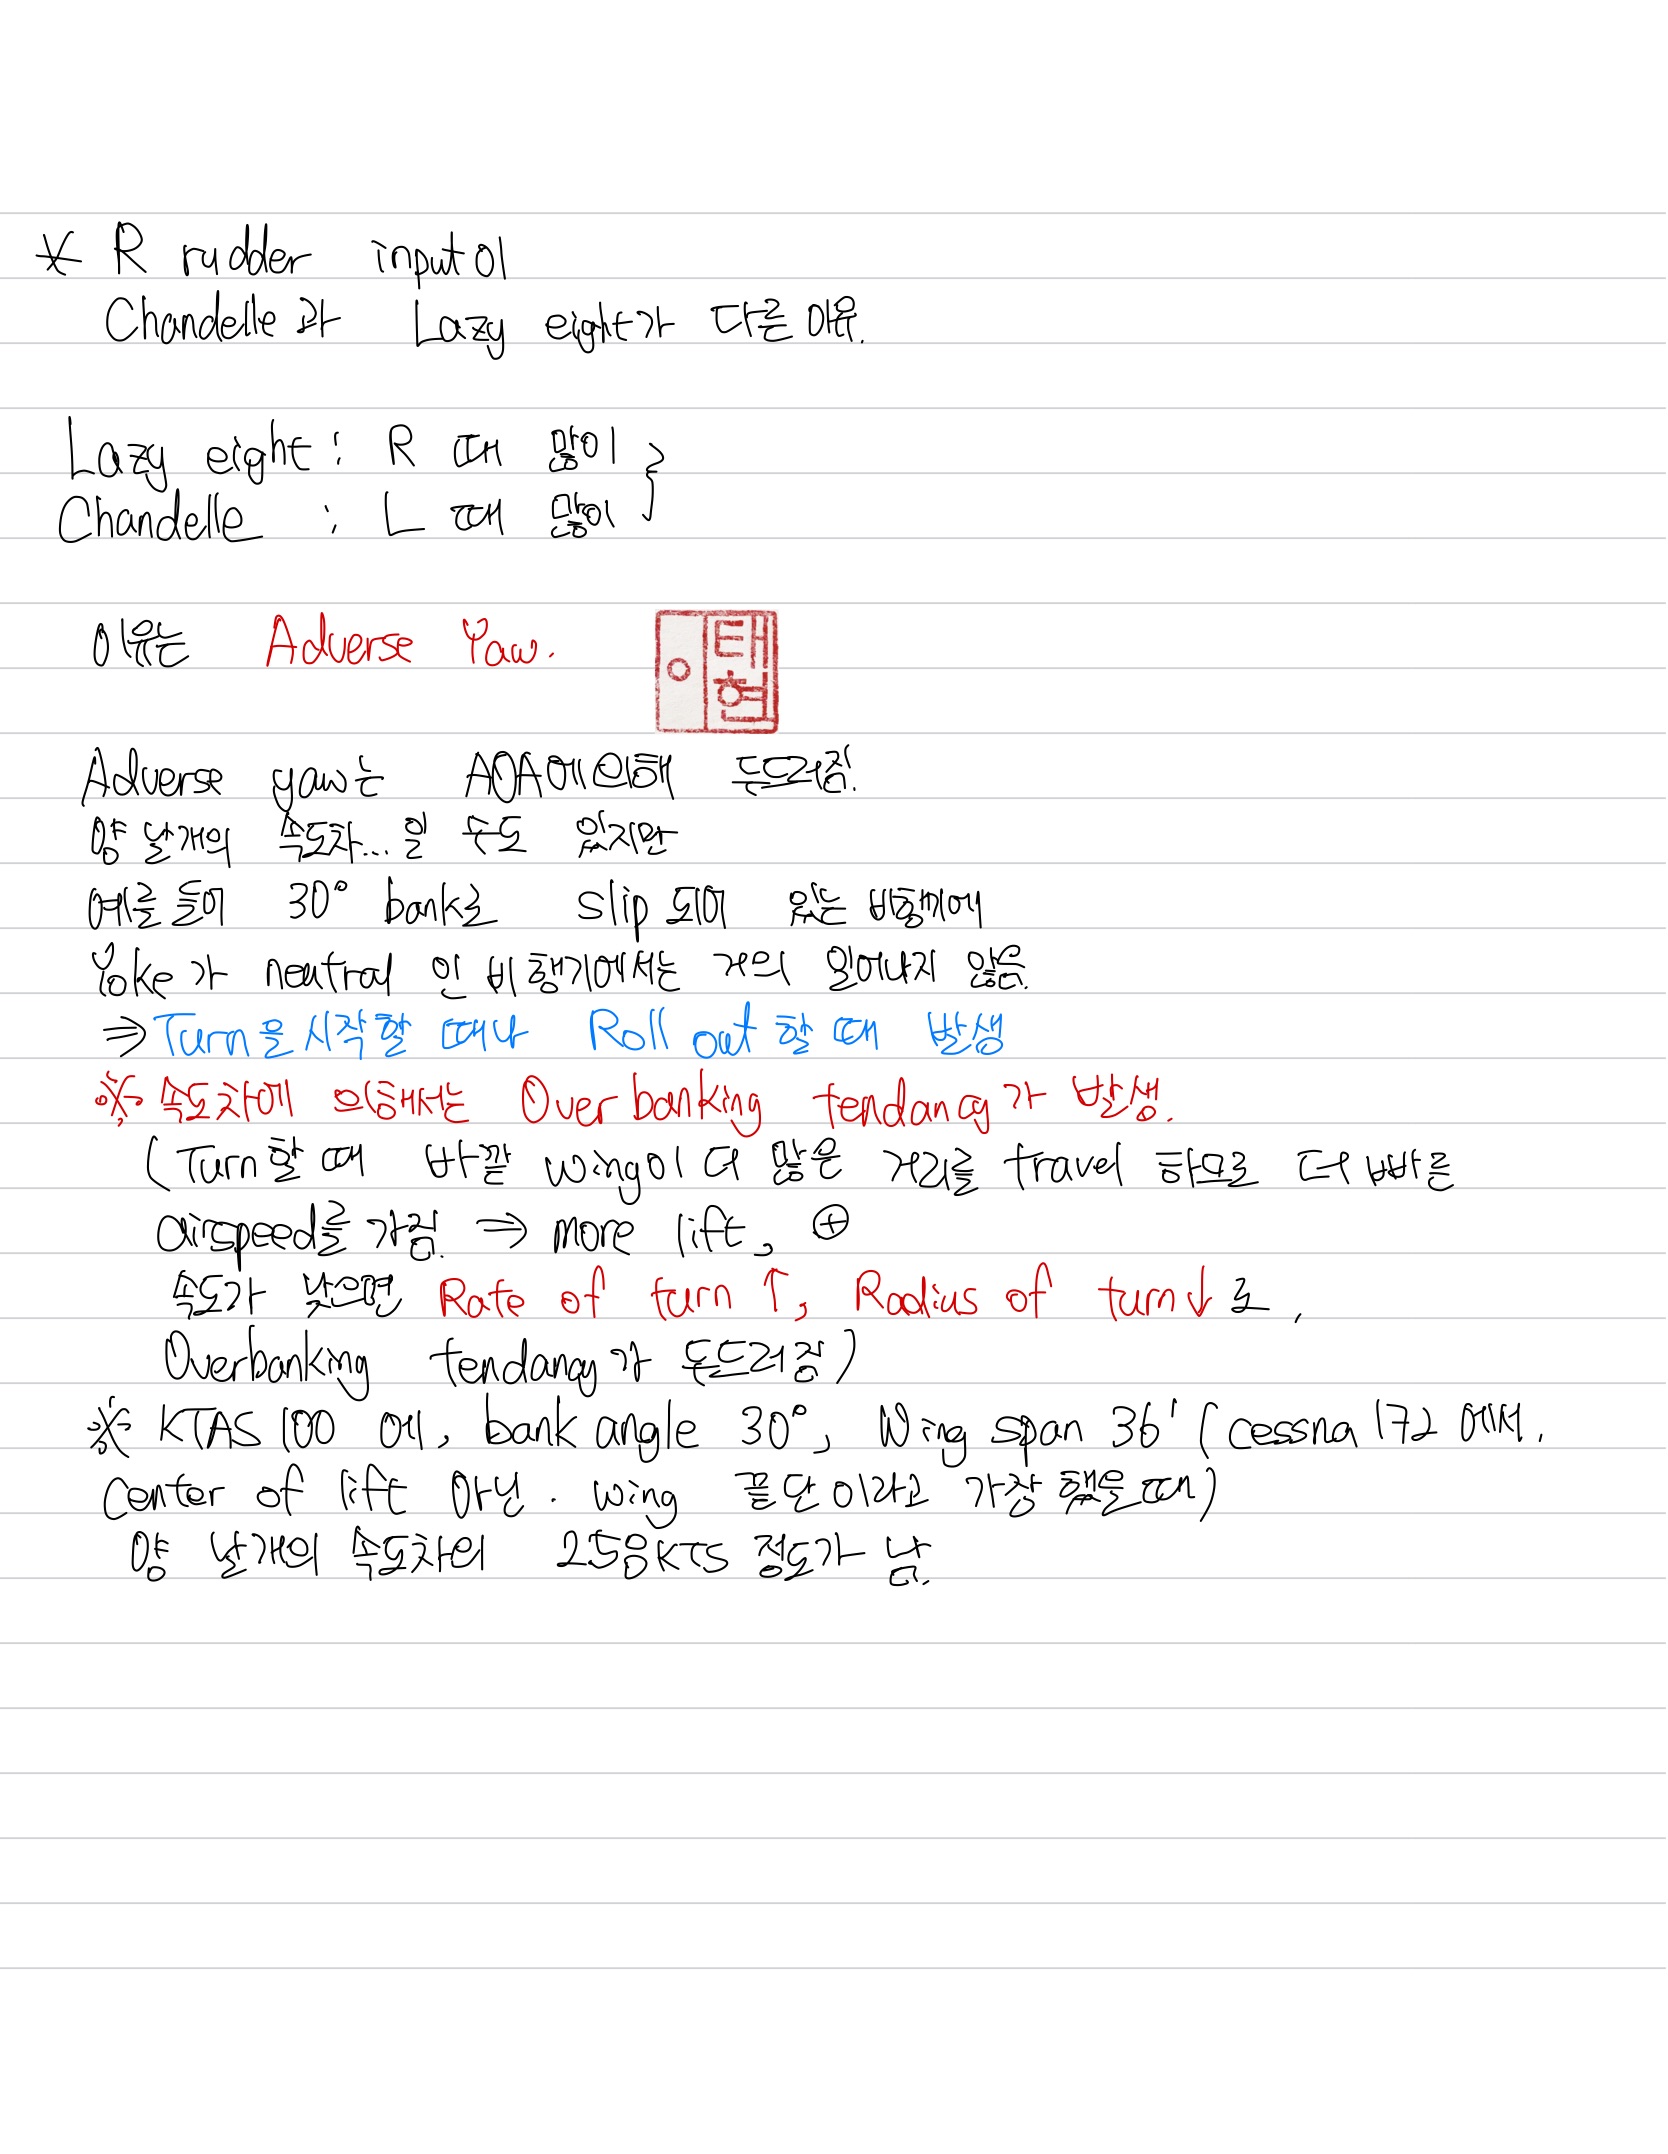 * R rudder input이
Chandelle과 Lazy eight가 다른 이유.
Lazy eight : R 때 많이 }
Chandelle : L 때 많이
이유는 Adverse Yaw.
이태현
Adverse yaw는 AOA에 의해 두드러짐.
양 날개의 속도차...일 수도 있지만
예를 들어 30° bank로 slip 되어 있는 비행기에
Yoke가 neutral 인 비행기에서는 거의 일어나지 않음.
⇒ Turn을 시작할 때나 Roll out 할 때 발생
※ 속도차에 의해서는 Over banking tendancy가 발생.
(Turn할 때 바깥 wing이 더 많은 거리를 travel 하므로 더 빠른
airspeed를 가짐. ⇒ more lift, ⊕
속도가 낮으면 Rate of turn ↑, Radius of turn↓ 로,
Overbanking tendancy가 두드러짐)
※ KTAS 100 에, bank angle 30°, Wing span 36' (cessna 172 에서.
Center of lift 아닌. wing 끝단이라고 가장 했을 때)
양 날개의 속도차의 KTS 정도가 남.